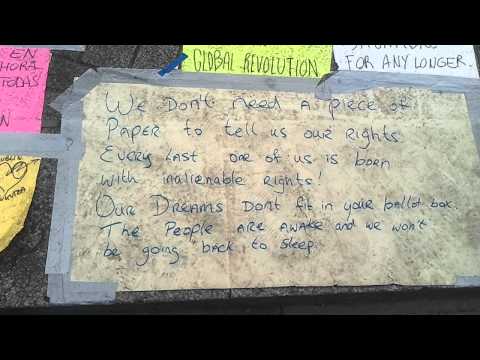 EN
AHORA
TODAS
GLOBAL REVOLUTION
FOR ANY LONGER.
We Don't need a piece of
PAPER to tell us our rights
Every last one of us is born
with inalienable rights!
OUR DREAMS DONT fit in your ballot box.
The People are awake and we won't
be going back to sleep.